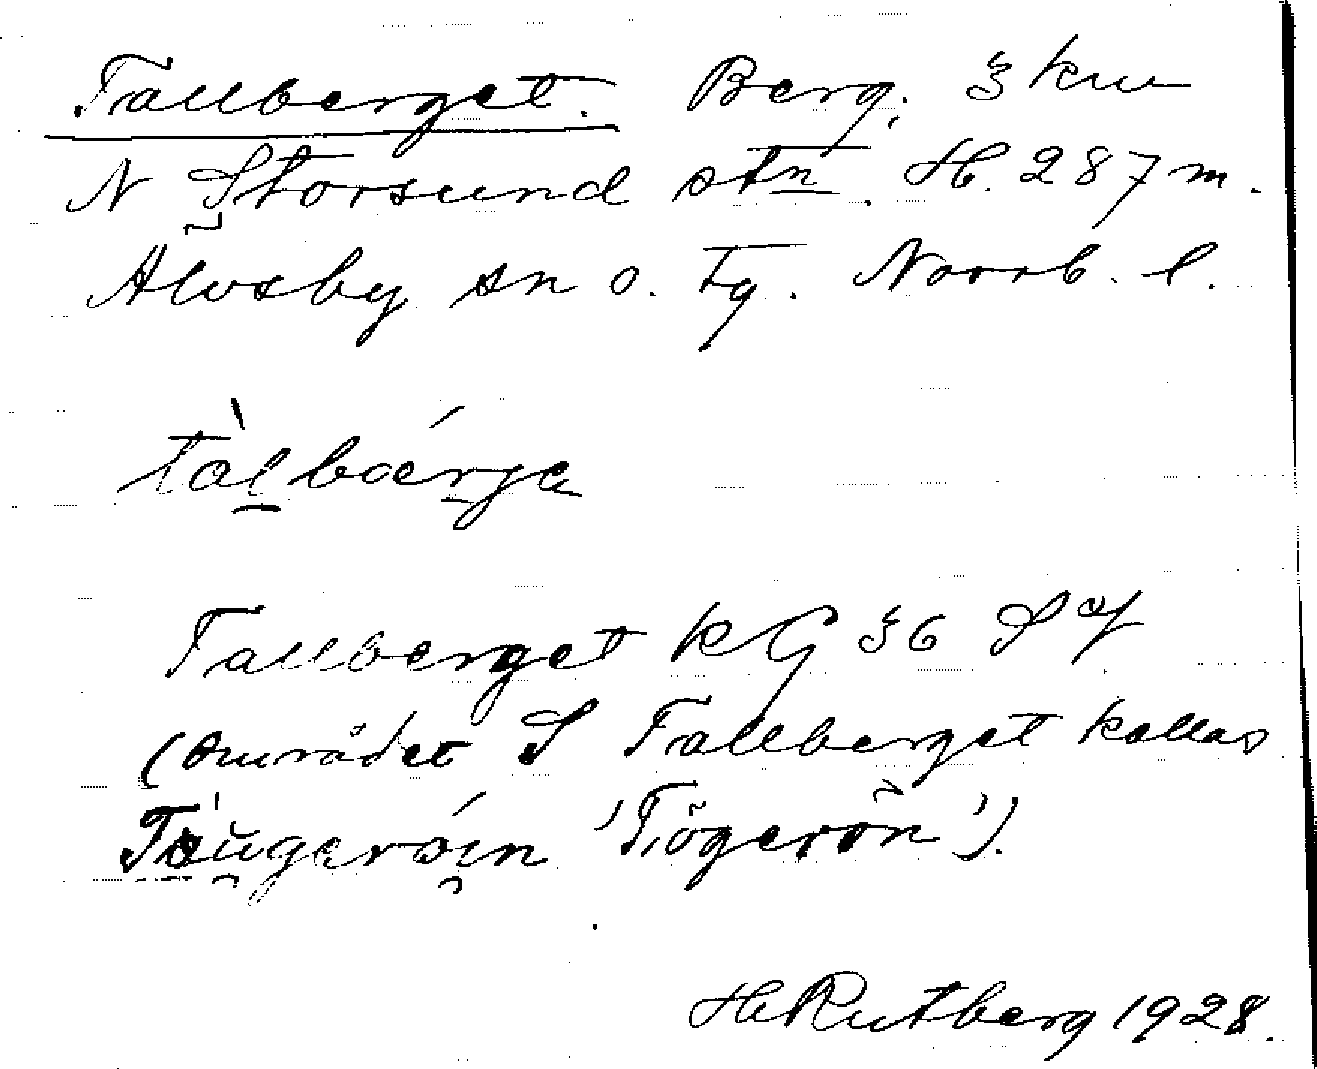 Tallberget. Berg, 3 km
N Storsund stn. H. 287 m.
Älvsby sn o. tg. Norrb. l.
tàlbǽrjɐ
Tallberget KG 36 SV
(området S Tallberget kallas
'Tiögerön').
H Rutberg 1928.